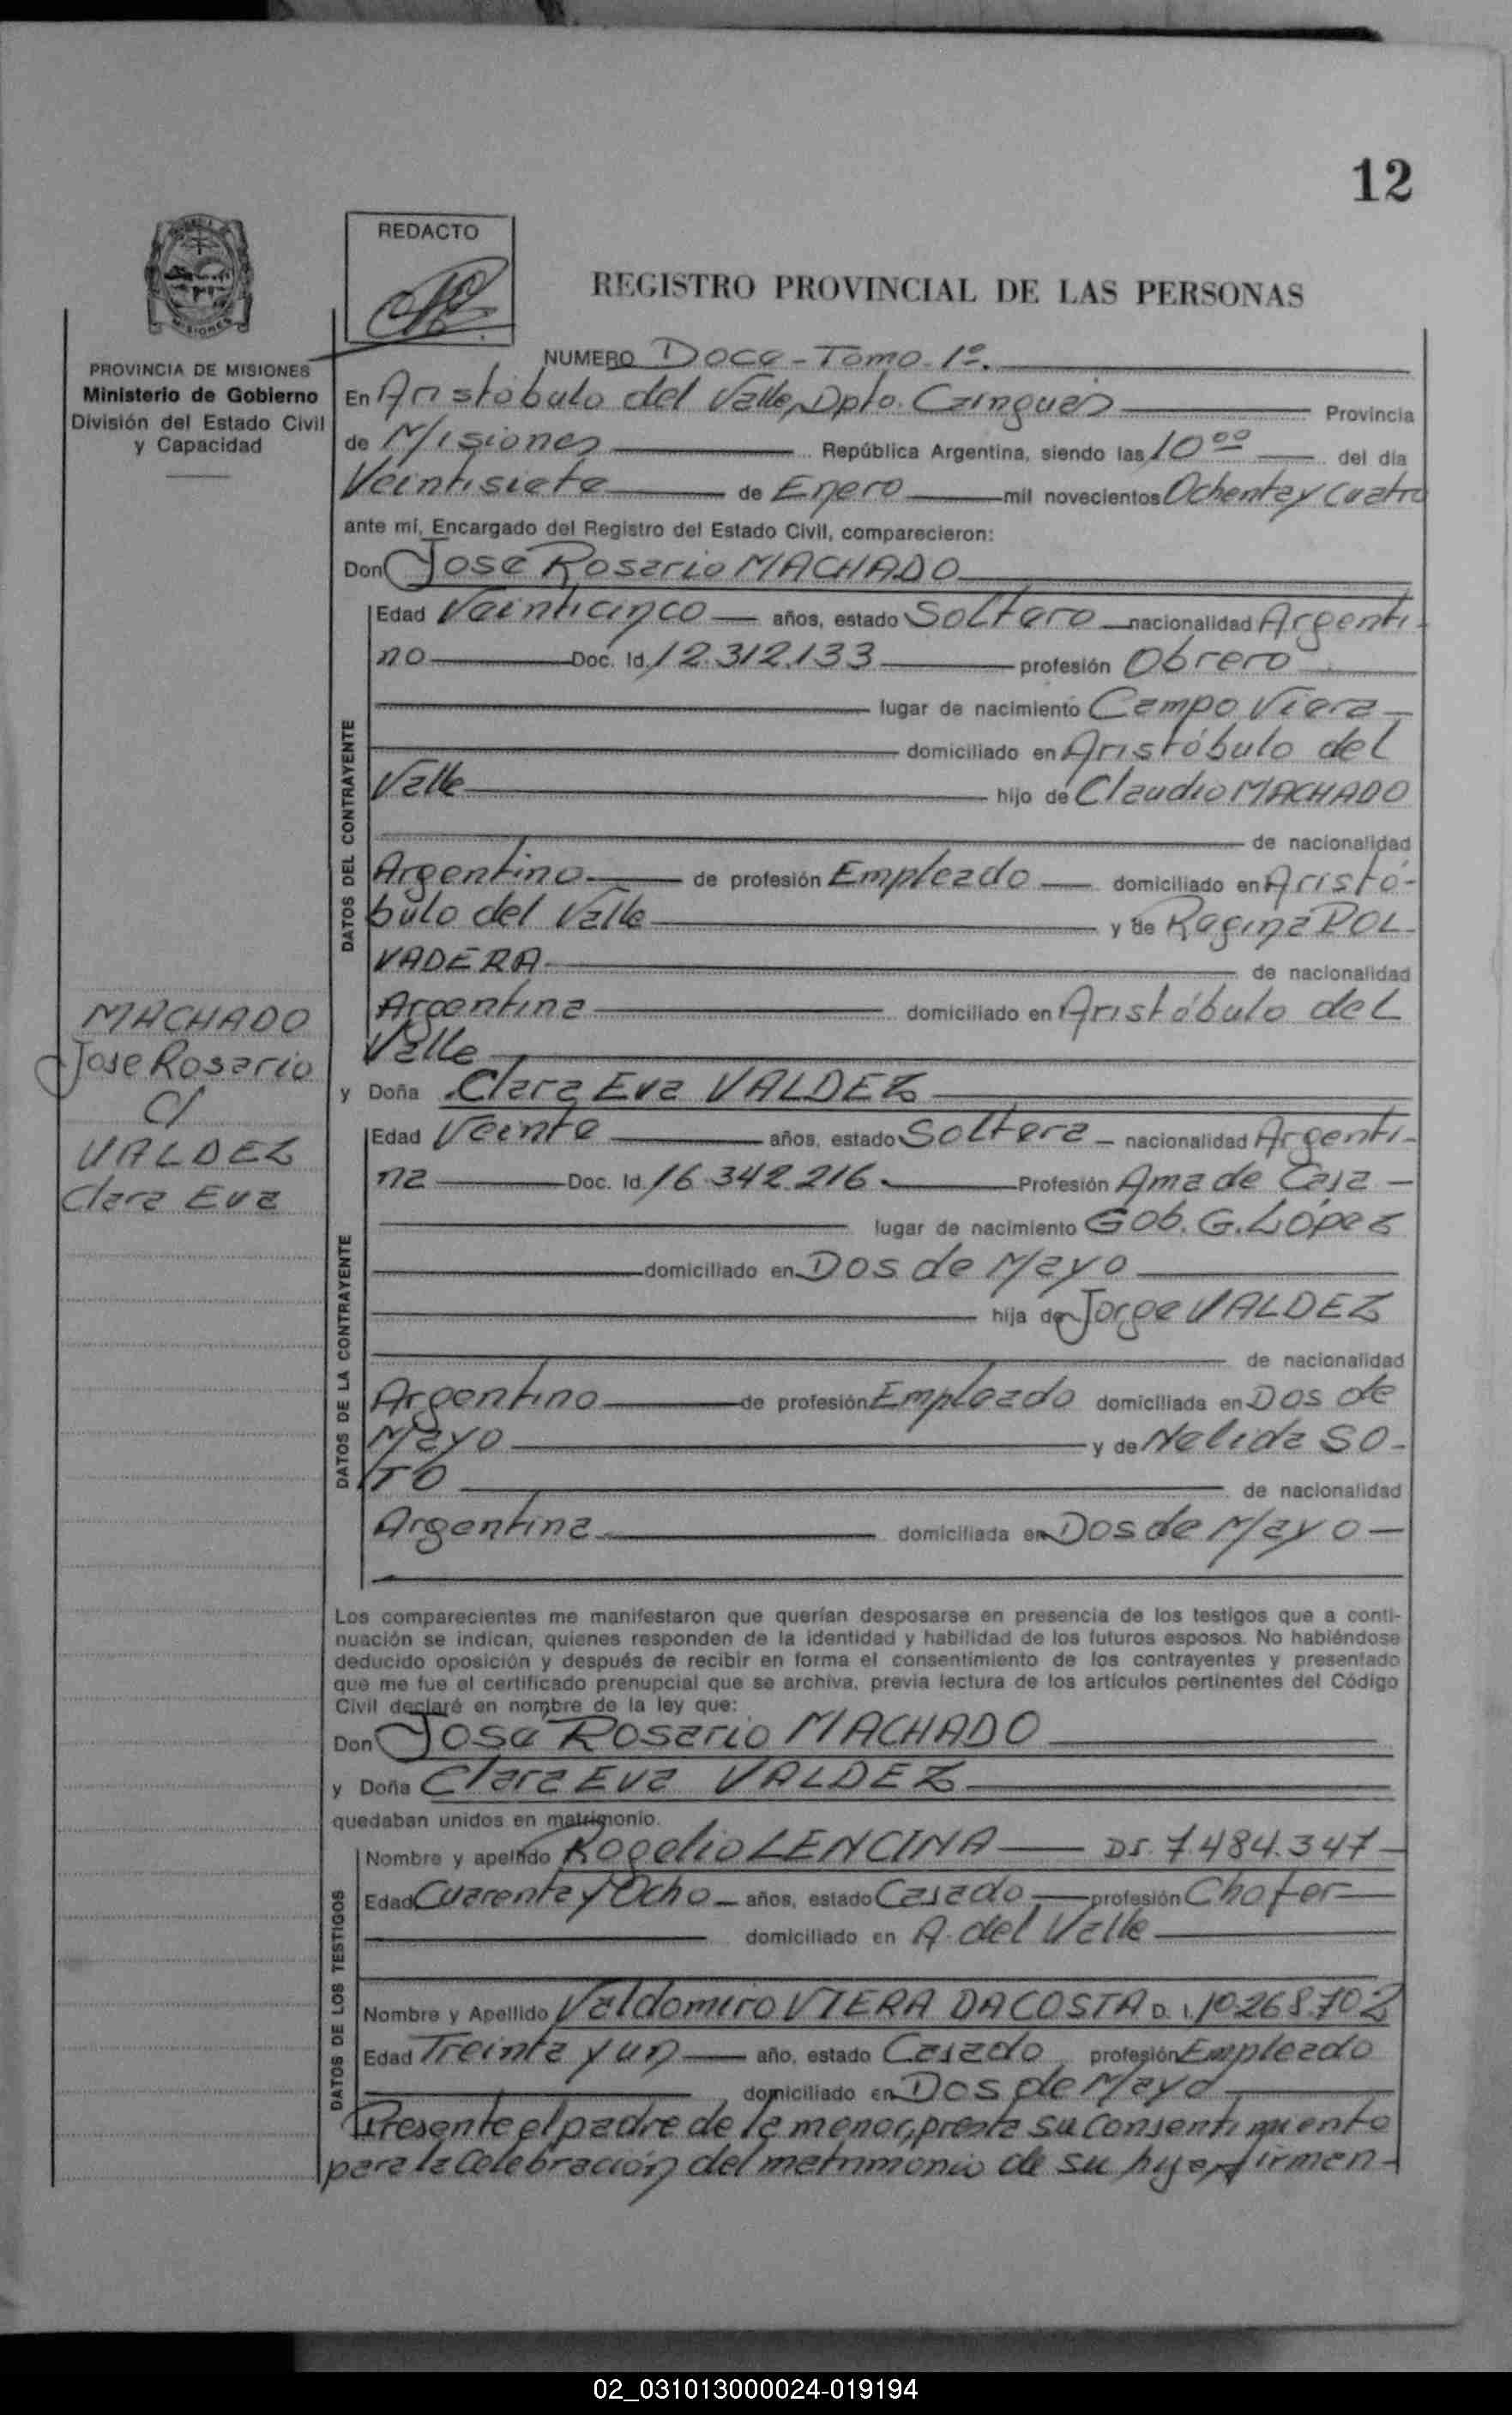 12
REDACTO
REGISTRO PROVINCIAL DE LAS PERSONAS
MISIONES
PROVINCIA DE MISIONES
Ministerio de Gobierno
División del Estado Civil
y Capacidad
NUMERO Doce - Tomo 1º.
En Aristóbulo del Valle, Dpto. Cainguás Provincia
de Misiones República Argentina, siendo las 10 00 del día
Veintisiete de Enero mil novecientos Ochenta y Cuatro
ante mí, Encargado del Registro del Estado Civil, comparecieron:
Don José Rosario MACHADO
DATOS DEL CONTRAYENTE
Edad Veinticinco años, estado Soltero nacionalidad Argenti-
no Doc. Id. 12.312.133 profesión Obrero
lugar de nacimiento Campo Viera
domiciliado en Aristóbulo del
Valle hijo de Claudio MACHADO
de nacionalidad
Argentino de profesión Empleado domiciliado en Aristó-
bulo del Valle y de Regina POL-
VADERA de nacionalidad
Argentina domiciliado en Aristóbulo del
Valle
MACHADO
Jose Rosario
c/
VALDEZ
Clara Eva
y Doña Clara Eva VALDEZ
DATOS DE LA CONTRAYENTE
Edad Veinte años, estado Soltera nacionalidad Argenti-
na Doc. Id. 16.342.216 Profesión Ama de Casa
lugar de nacimiento Gob. G. López
domiciliado en Dos de Mayo
hija de Jorge VALDEZ
de nacionalidad
Argentino de profesión Empleado domiciliada en Dos de
Mayo y de Nelida SO-
TO de nacionalidad
Argentina domiciliada en Dos de Mayo
Los comparecientes me manifestaron que querían desposarse en presencia de los testigos que a conti-
nuación se indican, quienes responden de la identidad y habilidad de los futuros esposos. No habiéndose
deducido oposición y después de recibir en forma el consentimiento de los contrayentes y presentado
que me fue el certificado prenupcial que se archiva, previa lectura de los artículos pertinentes del Código
Civil declaré en nombre de la ley que:
Don José Rosario MACHADO
y Doña Clara Eva VALDEZ
quedaban unidos en matrimonio.
DATOS DE LOS TESTIGOS
Nombre y apellido Rogelio LENCINA DI. 7.484.347
Edad Cuarenta y Ocho años, estado Casado profesión Chofer
domiciliado en A. del Valle
Nombre y Apellido Valdomiro VIERA DACOSTA D. I. 10.268.702
Edad Treinta y un año, estado Casado profesión Empleado
domiciliado en Dos de Mayo
Presente el padre de la menor, presta su Consentimiento
para la Celebración del matrimonio de su hija, firman-
02_031013000024-019194